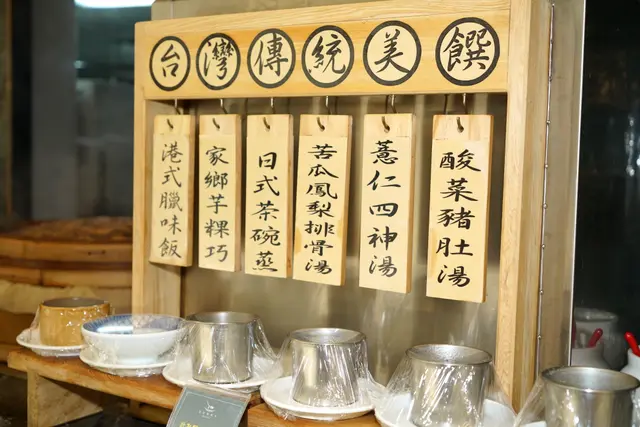 台灣傳統美饌
酸菜豬肚湯
薏仁四神湯
苦瓜鳳梨排骨湯
日式茶碗蒸
家鄉芋粿巧
港式臘味飯